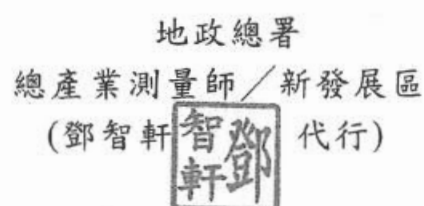 地政總署
總產業測量師／新發展區
(鄧智軒 代行)
鄧智軒